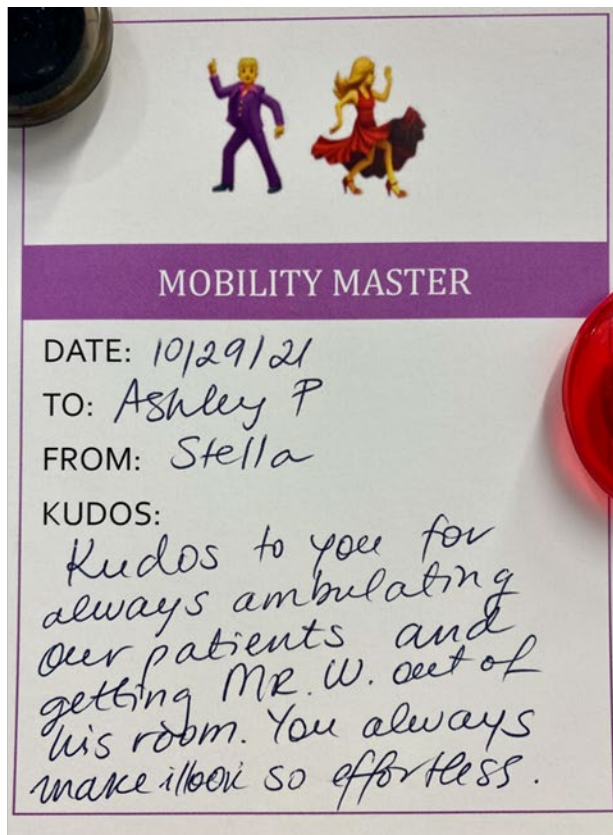 MOBILITY MASTER
DATE: 10/29/21
TO: Ashley P
FROM: Stella
KUDOS:
Kudos to you for
always ambulating
our patients and
getting MR. W. out of
his room. You always
make it look so effortless.